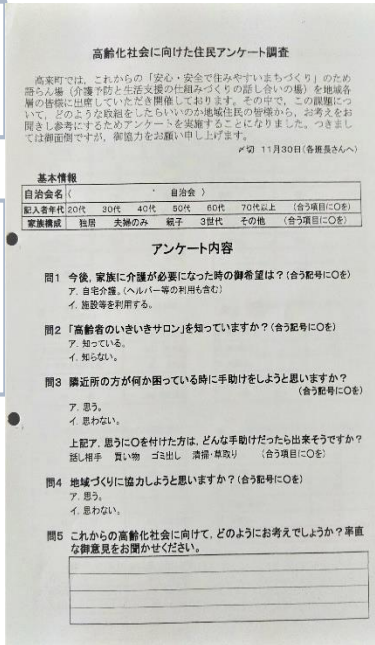 高齢化社会に向けた住民アンケート調査
高来町では、これからの「安心・安全で住みやすいまちづくり」のため
語らん場（介護予防と生活支援の仕組みづくりの話し合いの場）を地域各
層の皆様に出席していただき開催しております。その中で、この課題につ
いて、どのような取組をしたらいいのか地域住民の皆様から、お考えをお
聞きし参考にするためアンケートを実施することになりました。つきまし
ては御面倒ですが、御協力をお願い申し上げます。
〆切 11月30日（各班長さんへ）
基本情報
自治会名（ 自治会 ）
記入者年代 20代 30代 40代 50代 60代 70代以上 （合う項目に○を）
家族構成 独居 夫婦のみ 親子 3世代 その他 （合う項目に○を）
アンケート内容
問1 今後，家族に介護が必要になった時の御希望は？（合う記号に○を）
ア．自宅介護。（ヘルパー等の利用も含む）
イ．施設等を利用する。
問2 「高齢者のいきいきサロン」を知っていますか？（合う記号に○を）
ア．知っている。
イ．知らない。
問3 隣近所の方が何か困っている時に手助けをしようと思いますか？
（合う記号に○を）
ア．思う。
イ．思わない。
上記ア．思うに○を付けた方は，どんな手助けだったら出来そうですか？
話し相手 買い物 ゴミ出し 清掃・草取り （合う項目に○を）
問4 地域づくりに協力しようと思いますか？（合う記号に○を）
ア．思う。
イ．思わない。
問5 これからの高齢化社会に向けて，どのようにお考えでしょうか？率直
な御意見をお聞かせください。